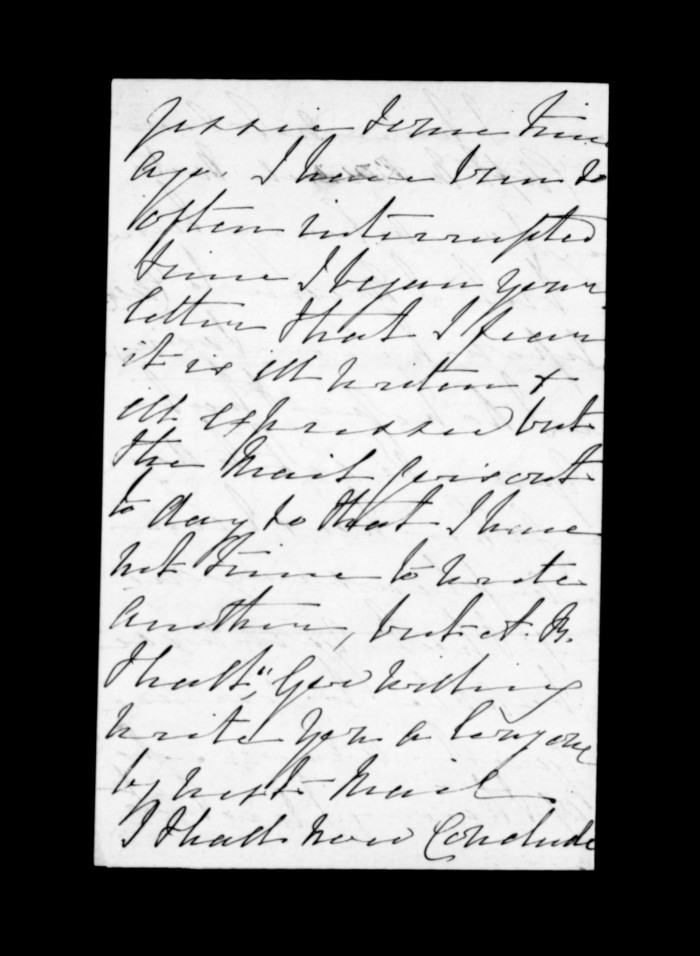 Jessie some time
ago. I have been so
often interrupted
since I began your
letter that I fear
it is ill written &
ill expressed but
the Mail goes out
to day so that I have
not time to write
another, but
I shall, God willing
write you a long one
by next Mail
I shall now Conclude